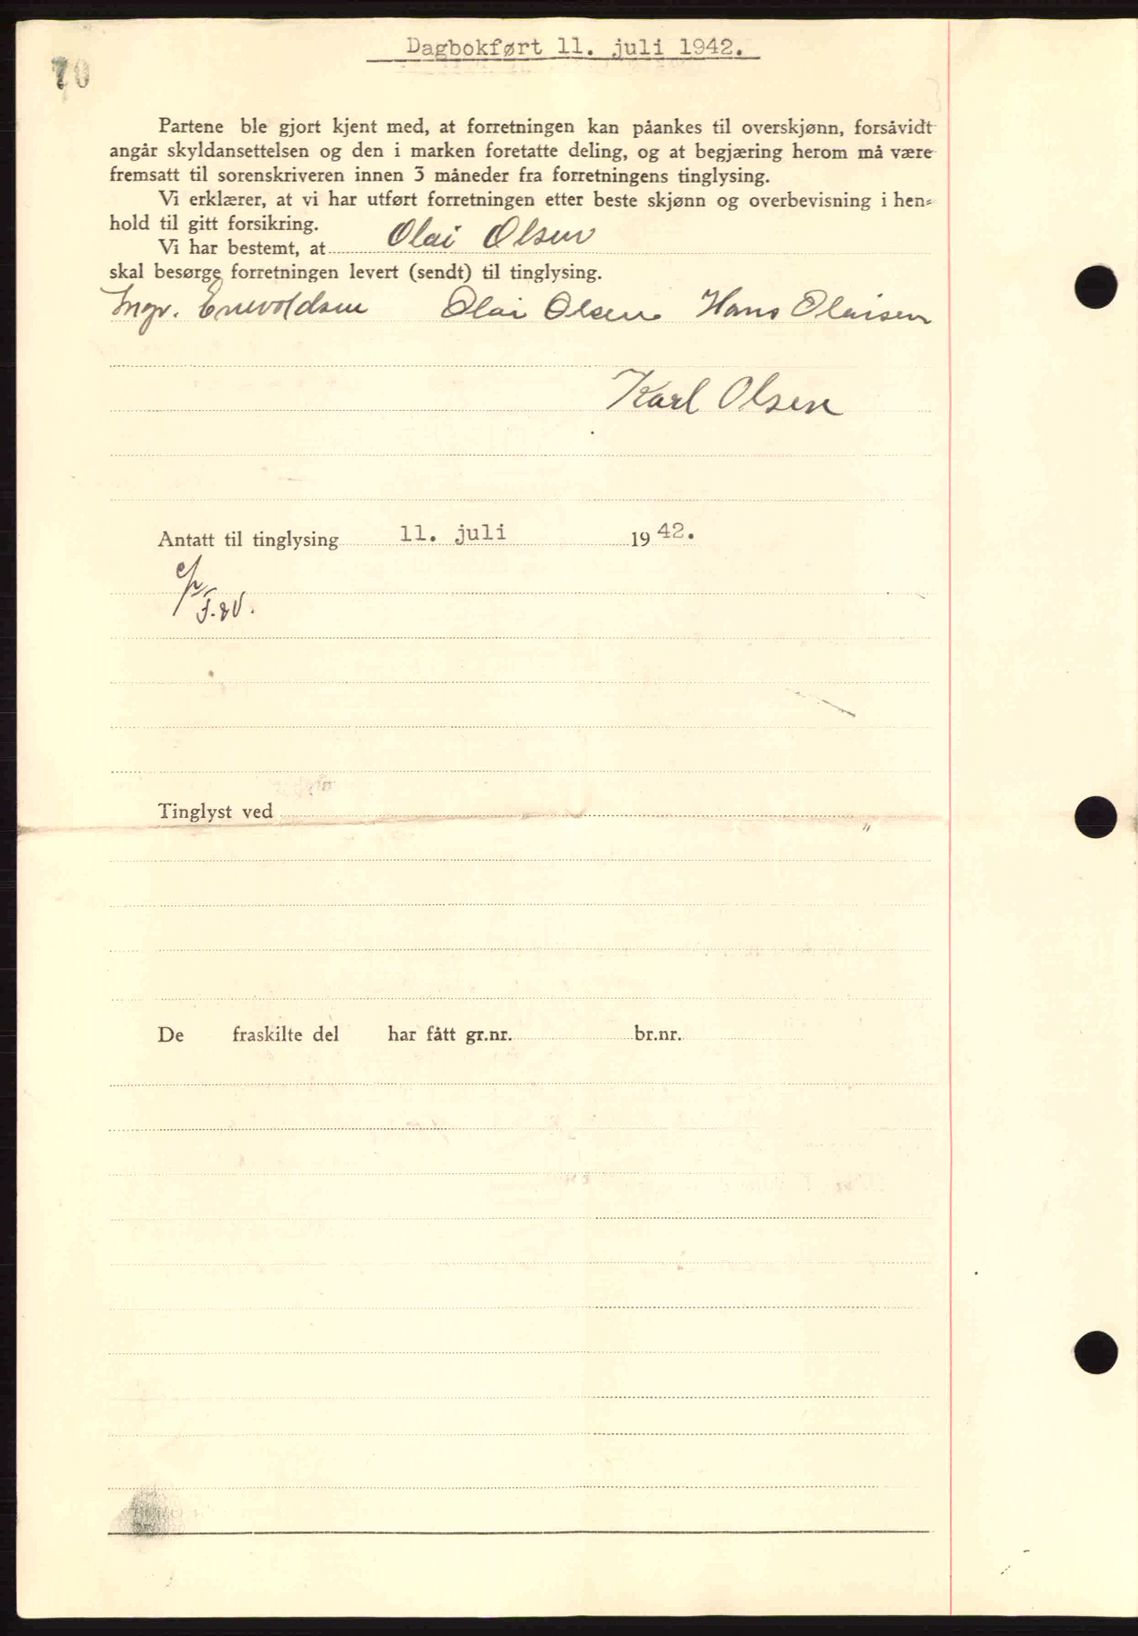 70
Dagbokført 11. juli 1942.
Partene ble gjort kjent med, at forretningen kan påankes til overskjønn, forsåvidt
angår skyldansettelsen og den i marken foretatte deling, og at begjæring herom må være
fremsatt til sorenskriveren innen 3 måneder fra forretningens tinglysing.
Vi erklærer, at vi har utført forretningen etter beste skjønn og overbevisning i hen=
hold til gitt forsikring.
Vi har bestemt, at Olai Olsen
skal besørge forretningen levert (sendt) til tinglysing.
Ingv. Enevoldsen Olai Olsen Hans Olaisen
Karl Olsen
Antatt til tinglysing 11. juli 1942.
Tinglyst ved
De fraskilte del har fått gr.nr. br.nr.